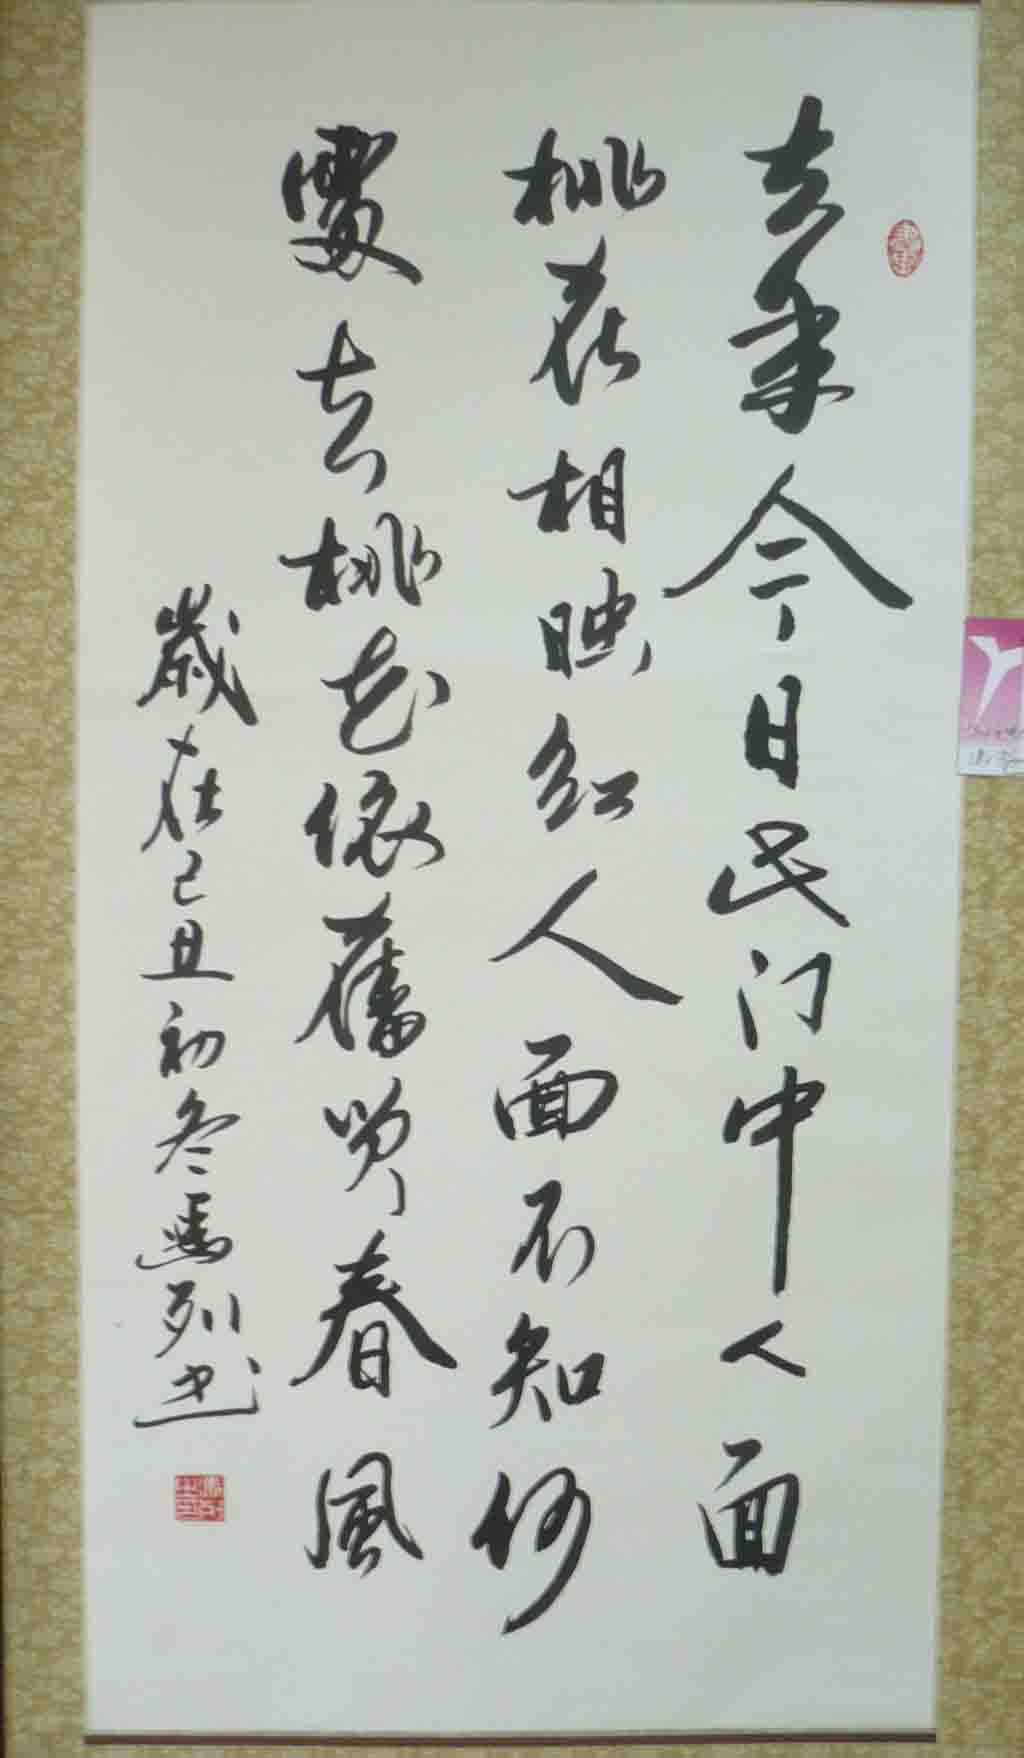 去年今日民门中人面
桃花相映红人面不知何
處去桃花依舊笑春風
歲在己丑初冬馮列书